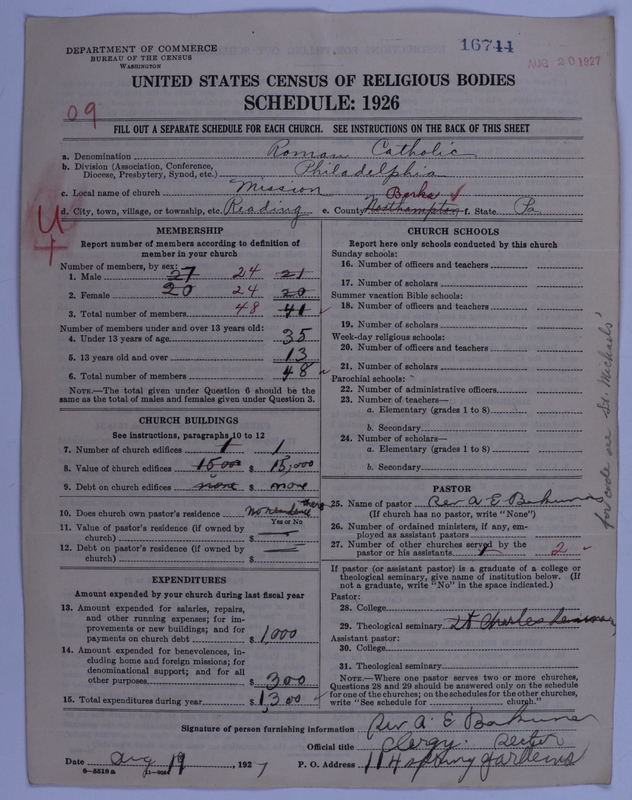 DEPARTMENT OF COMMERCE
BUREAU OF THE CENSUS
WASHINGTON
16744
AUG 20 1927
UNITED STATES CENSUS OF RELIGIOUS BODIES
SCHEDULE: 1926
09
FILL OUT A SEPARATE SCHEDULE FOR EACH CHURCH. SEE INSTRUCTIONS ON THE BACK OF THIS SHEET
a. Denomination Roman Catholic
b. Division (Association, Conference, Diocese, Presbytery, Synod, etc.) Philadelphia
c. Local name of church Mission
d. City, town, village, or township, etc. Reading e. County Northampton Berks f. State Pa
U
MEMBERSHIP
Report number of members according to definition of member in your church
Number of members, by sex:
1. Male 27 24 21
2. Female 20 24 20
3. Total number of members 48 41
Number of members under and over 13 years old:
4. Under 13 years of age 35
5. 13 years old and over 13
6. Total number of members 48
NOTE.—The total given under Question 6 should be the same as the total of males and females given under Question 3.
CHURCH BUILDINGS
See instructions, paragraphs 10 to 12
7. Number of church edifices 1 1
8. Value of church edifices 15000 $ 15,000
9. Debt on church edifices none $ none
10. Does church own pastor's residence no residence there
Yes or No
11. Value of pastor's residence (if owned by church) $
12. Debt on pastor's residence (if owned by church) $
EXPENDITURES
Amount expended by your church during last fiscal year
13. Amount expended for salaries, repairs, and other running expenses; for improvements or new buildings; and for payments on church debt $ 1,000
14. Amount expended for benevolences, including home and foreign missions; for denominational support; and for all other purposes $ 300
15. Total expenditures during year $ 1,300
CHURCH SCHOOLS
Report here only schools conducted by this church
Sunday schools:
16. Number of officers and teachers
17. Number of scholars
Summer vacation Bible schools:
18. Number of officers and teachers
19. Number of scholars
Week-day religious schools:
20. Number of officers and teachers
21. Number of scholars
Parochial schools:
22. Number of administrative officers
23. Number of teachers—
a. Elementary (grades 1 to 8)
b. Secondary
24. Number of scholars—
a. Elementary (grades 1 to 8)
b. Secondary
for code see St. Michaels'
PASTOR
25. Name of pastor Rev A E
(If church has no pastor, write "None")
26. Number of ordained ministers, if any, employed as assistant pastors
27. Number of other churches served by the pastor or his assistants 1 2
If pastor (or assistant pastor) is a graduate of a college or theological seminary, give name of institution below. (If not a graduate, write "No" in the space indicated.)
Pastor:
28. College
29. Theological seminary St Charles Seminary
Assistant pastor:
30. College
31. Theological seminary
NOTE.—Where one pastor serves two or more churches, Questions 28 and 29 should be answered only on the schedule for one of the churches; on the schedules for the other churches, write "See schedule for church."
Signature of person furnishing information Rev A. E
Official title Clergy. Rector
Date Aug 19, 1927 P. O. Address 114 Spring Gardens
8—5518a